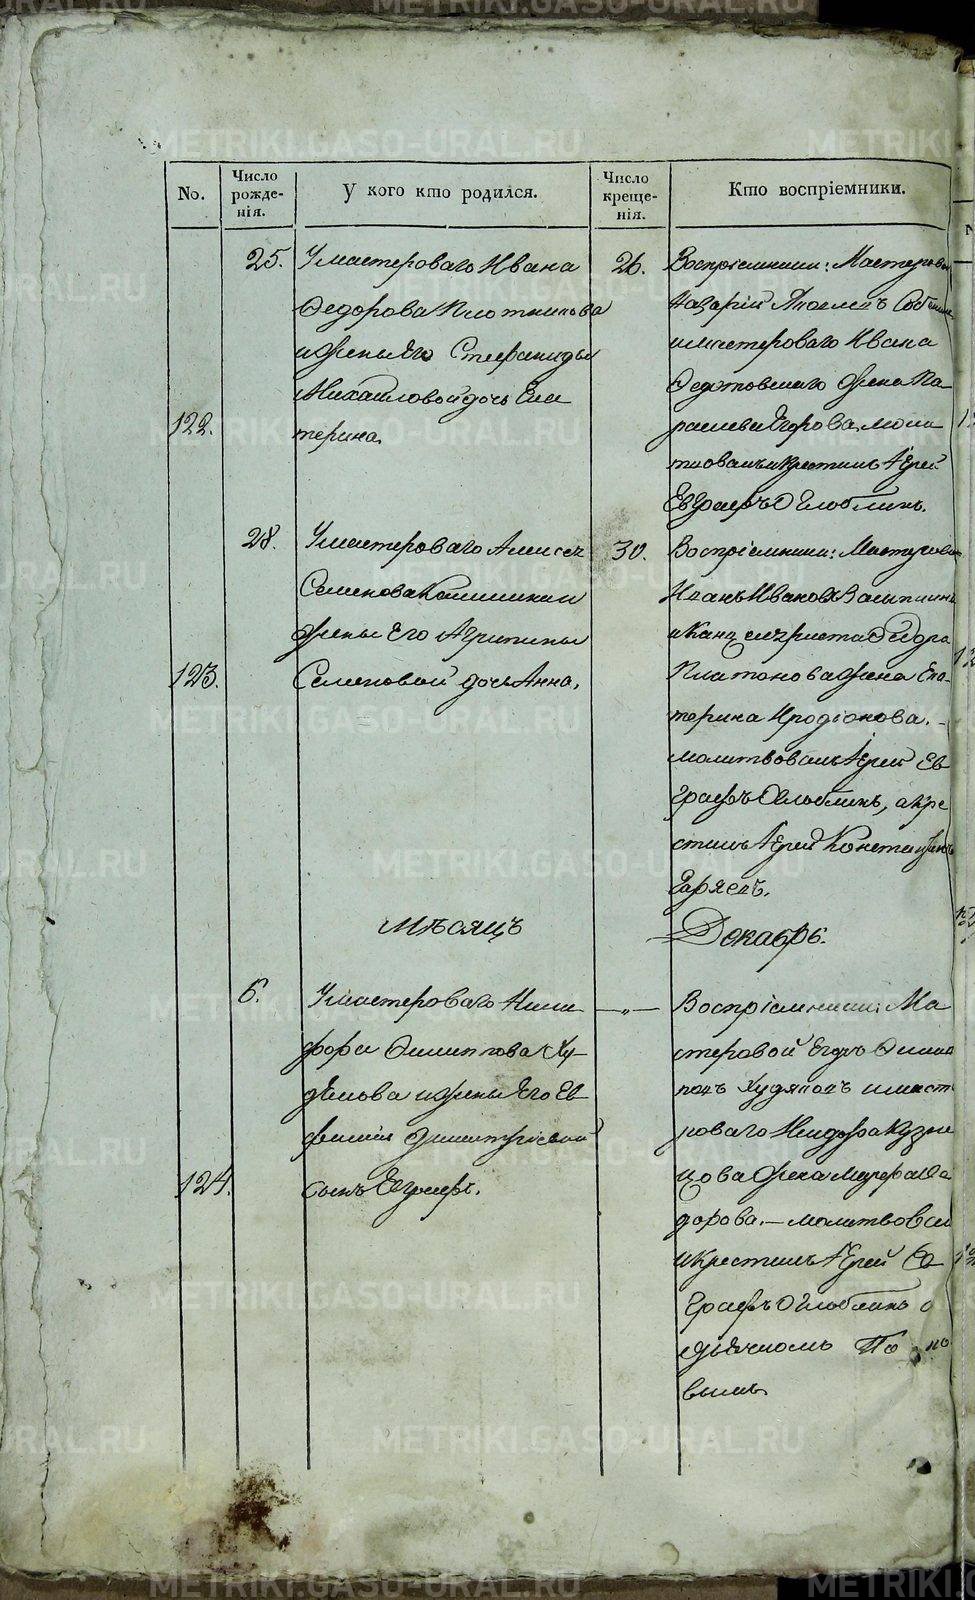 METRIKI.GASO-URAL.RU
No.
Число рожденія.
У кого кто родился.
Число крещенія.
Кто воспріемники.
25.
У мастероваго Ивана
Федорова Плотникова
и жены Его Стефаниды
Михайловой дочь Ека
122.
терина
26.
Воспріемники: Мастеровой
мастероваго Ивана
жена Па
раскева Егорова, моли
твовалъ и крестилъ Іерей
Евграфъ Оглоблинъ.
28.
У мастероваго Алексея
Семенова Калашникова
жены Его Агрипины
123.
Семеновой дочь Анна.
30.
Воспріемники: Мастеровой
Иванъ Ивановъ
и Канцеляриста Федора
Платонова жена Ека-
терина Иродіонова. -
молитвовалъ Іерей Ев
графъ Оглоблинъ, а кре
стилъ Іерей Константинъ
Мѣсяцъ
Декабрь.
6.
У мастероваго Ники
фора Филипова Ху-
дякова и жены Его Ев
фиміи Димитріевой
124.
сынъ Евграфъ.
— „ —
Воспріемники: Ма
стеровой Егоръ Филип
повъ Худяковъ и масте
роваго Кузне
цова жена Фе
дорова. — молитвовал
и крестилъ Іерей Ев
графъ Оглоблинъ с
дьячкомъ По по
вымъ